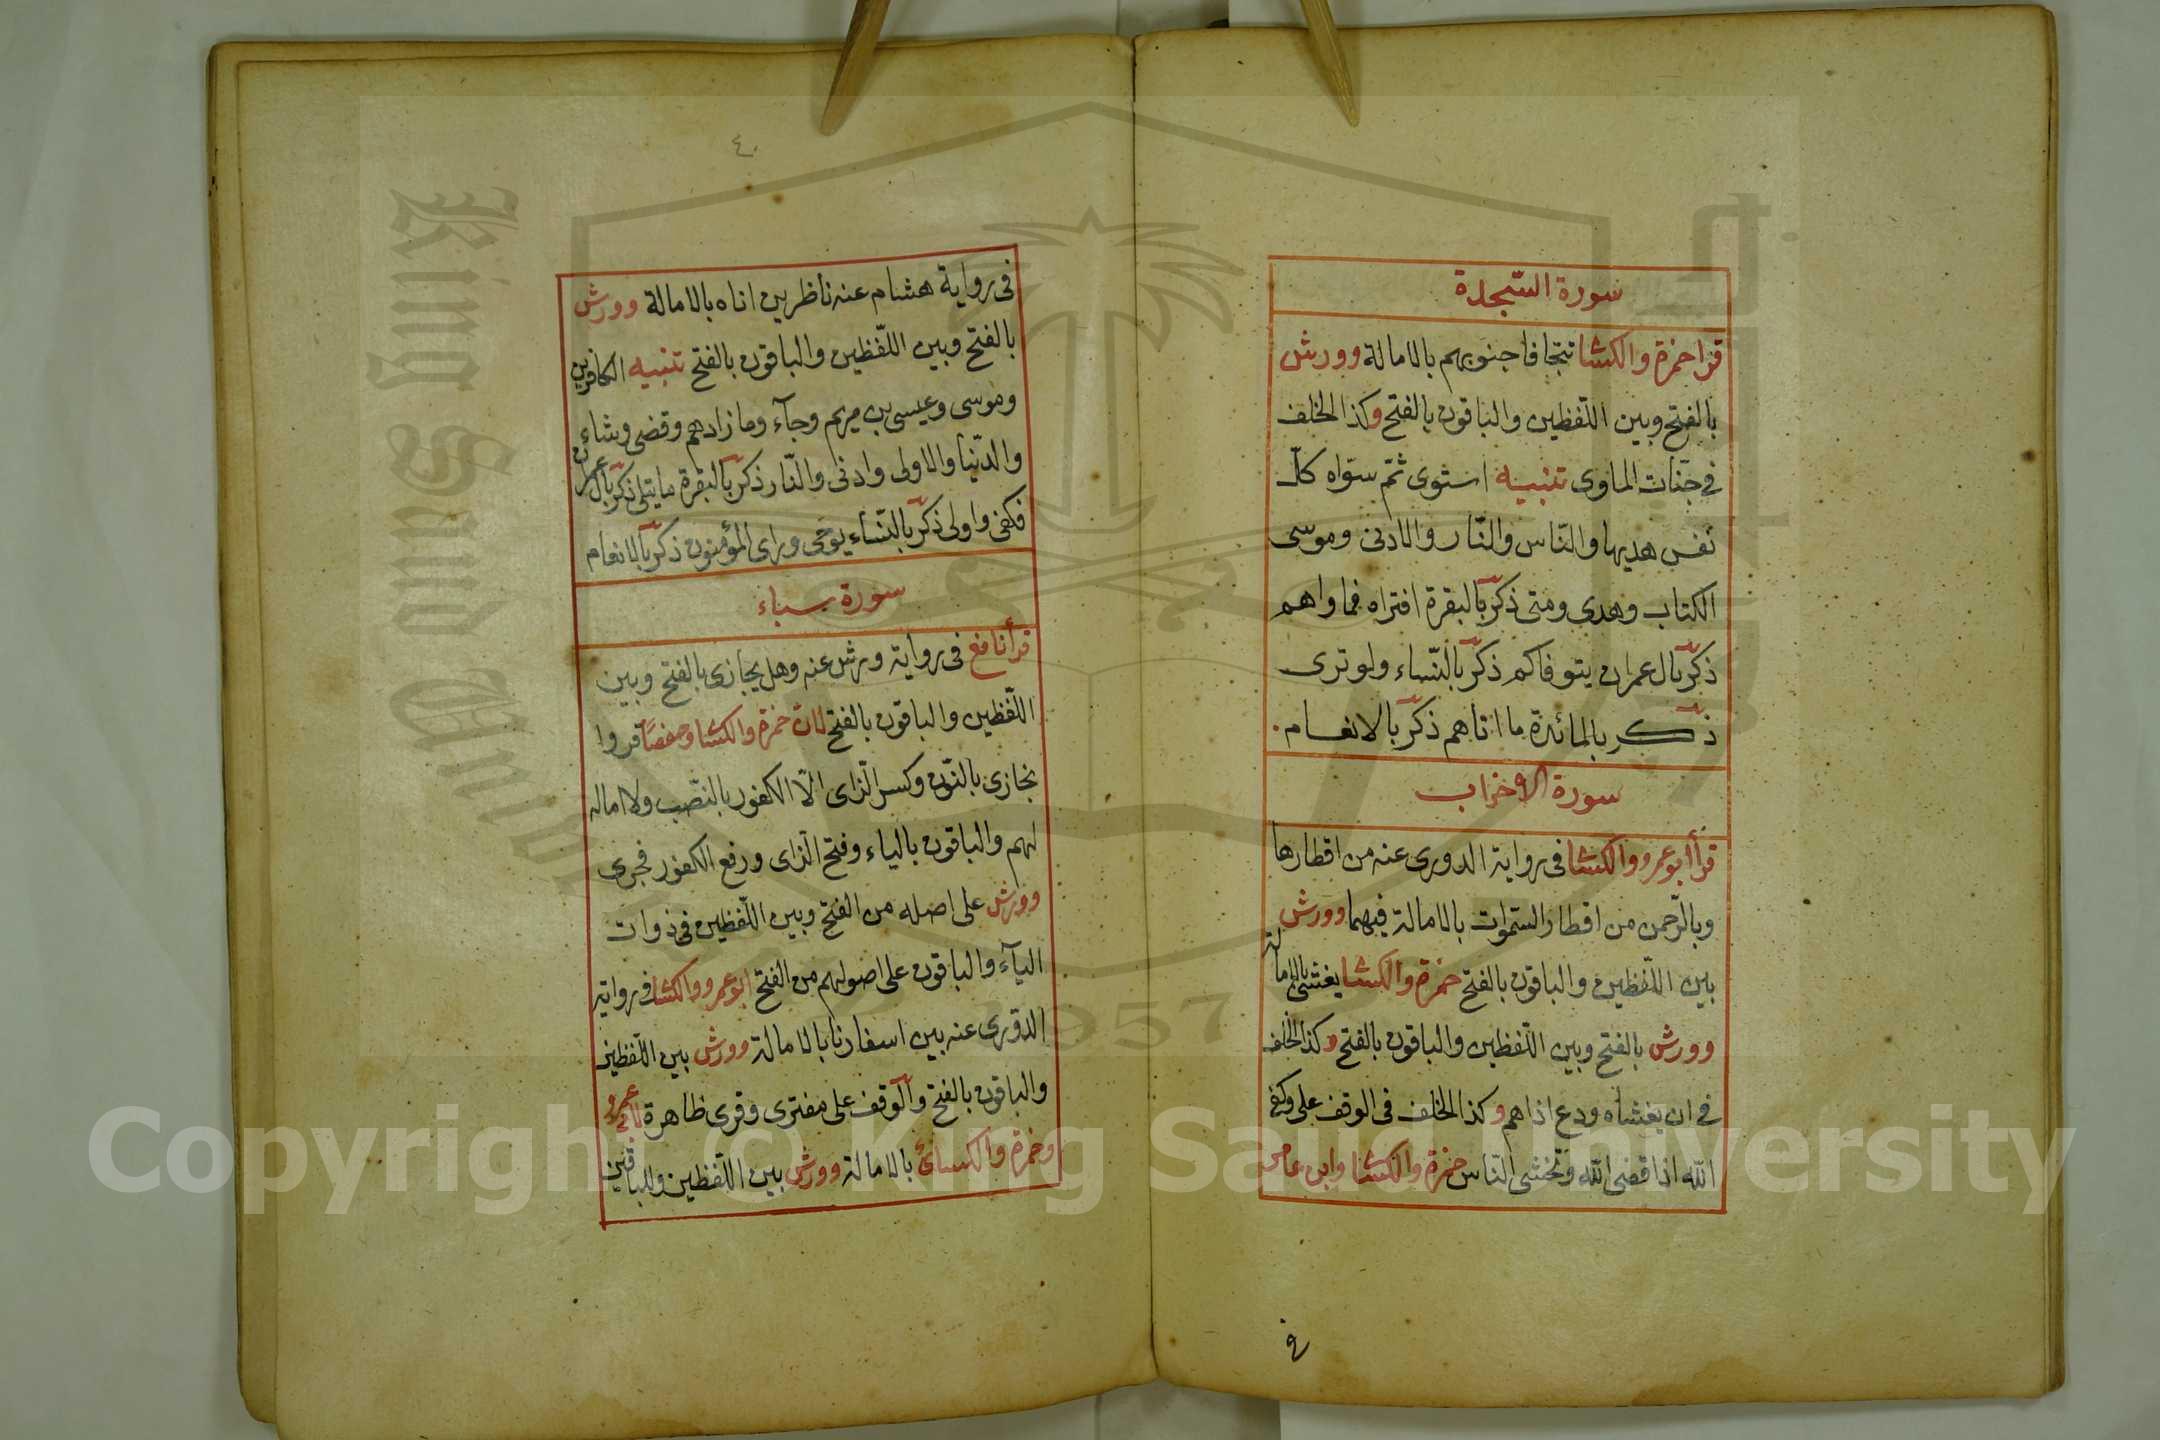 سورة السّجدة
قرا حمزة والكسا تتجافا جنوبهم بالامالة وورش
بالفتح وبين اللّفظين والباقون بالفتح وكذا الخلف
في جنّات الماوى تنبيه استوى ثمّ سوّاه كلّ
نفس هديها والنّاس والنّار والادنى وموسى
الكتاب وهدى ومتى ذكر بالبقرة افتراه فماواهم
ذكر بال عمران يتوفاكم ذكر بالنّساء ولو ترى
ذكر بالمائدة ما اتاهم ذكر بالانعام
سورة الاحزاب
قرأ ابو عمرو والكسا في رواية الدورى عنه من اقطارها
وبالرّحمن من اقطار السّموات بالامالة فيهما وورش
بين اللّفظين والباقون بالفتح حمزة والكسا يغشى بالامالة
وورش بالفتح وبين اللّفظين والباقون بالفتح وكذا الخلف
في ان يغشاه ودع اذاهم وكذا الخلف فى الوقف على وكفى
الله اذا قضى الله وتخشى النّاس حمزة والكسا وابن عامر
في
٤٠
فى رواية هشام عنه ناظرين اناه بالامالة وورش
بالفتح وبين اللّفظين والباقون بالفتح تنبيه الكافرين
وموسى وعيسى بن مريم وجآء وما زادهم وقضى وشاء
والدّنيا والاولى وادنى والنّار ذكر بالبقرة ما يتلى ذكر بال عمران
فكفى واولى ذكر بالنّساء يوحى وراى المؤمنون ذكر بالانعام
سورة سباء
قرأ نافع فى رواية ورش عنه وهل يجازى بالفتح وبين
اللّفظين والباقون بالفتح لانّ حمزة والكسا وحفصًا قروا
نجازى بالنّون وكسر الزّاى الّا الكفور بالنصّب ولا اماله
لهم والباقون بالياء وفتح الزاى ورفع الكفور فجرى
وورش على اصله من الفتح وبين اللّفظين فى ذوات
اليآء والباقون على اصولهم من الفتح ابو عمرو والكسا في رواية
الدّورى عنه بين اسفارنا بالامالة وورش بين اللّفظين
والباقون بالفتح والوقف على مفترى وقرى ظاهرة لابى عمرو
وحمزة والكسائ بالامالة وورش بين اللّفظين وللباقين
King Saud University
1957
Copyright © King Saud University